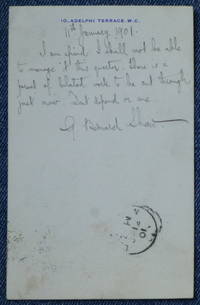 10, ADELPHI TERRACE, W.C.
11th January 1901.
I am afraid I shall not be able
to manage it this quarter. There is a
period of belated work to be got through
just now. Don't depend on me.
G. Bernard Shaw